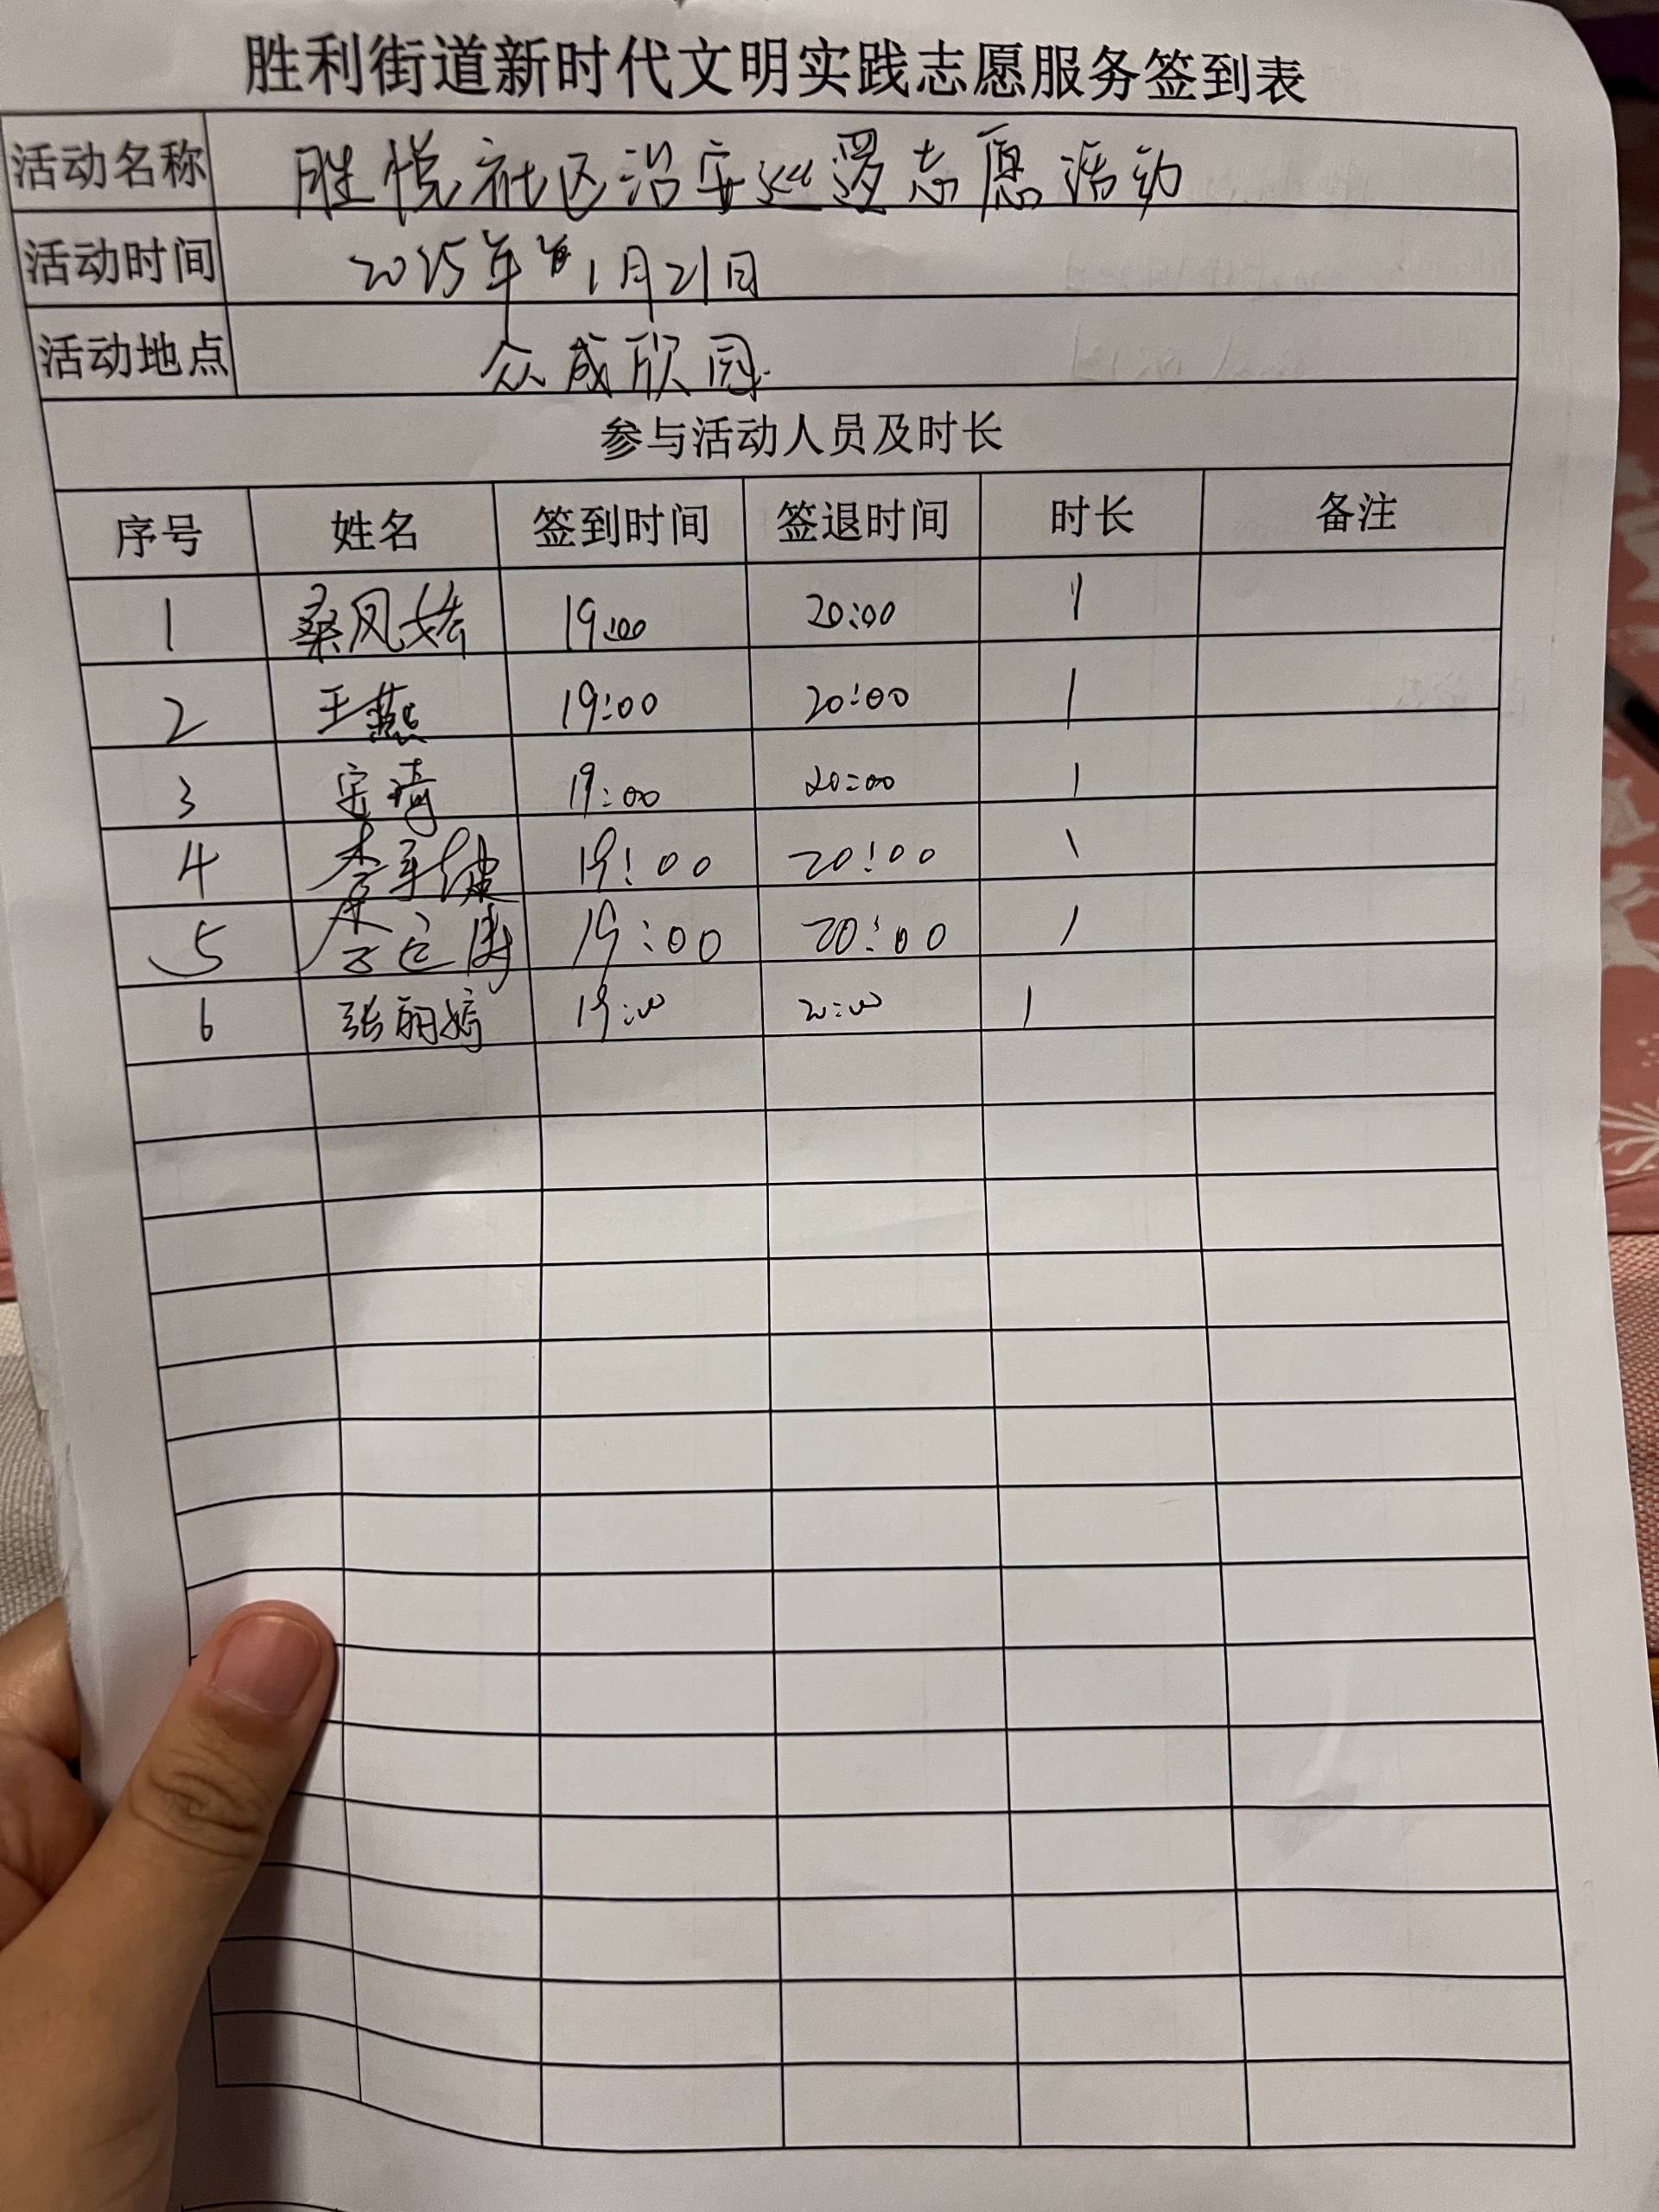 胜利街道新时代文明实践志愿服务签到表
活动名称 胜悦社区治安巡逻志愿活动
活动时间 2025年1月21日
活动地点 众成欣园
参与活动人员及时长
序号 姓名 签到时间 签退时间 时长 备注
1 桑凤娇 19:00 20:00 1
2 王燕 19:00 20:00 1
3 宋琦 19:00 20:00 1
4 19:00 20:00 1
5 19:00 20:00 1
6 张丽婷 19:00 20:00 1